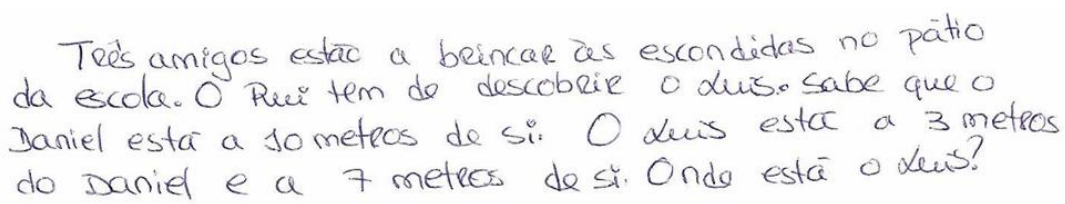 Três amigos estão a brincar às escondidas no pátio
da escola. O Rui tem de descobrir o Luís. Sabe que o
Daniel está a 10 metros de si. O Luís está a 3 metros
do Daniel e a 7 metros de si. Onde está o Luís?